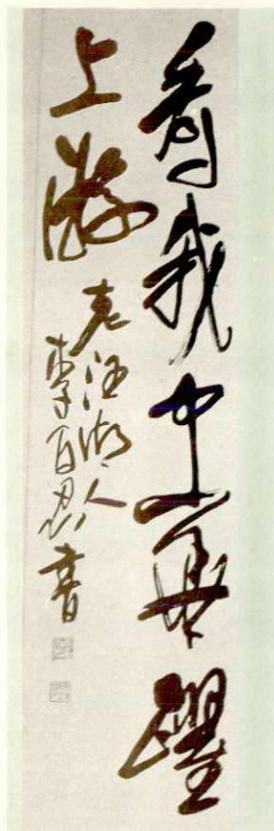 看我中華躍
上游
老汪湖人
李百忍書